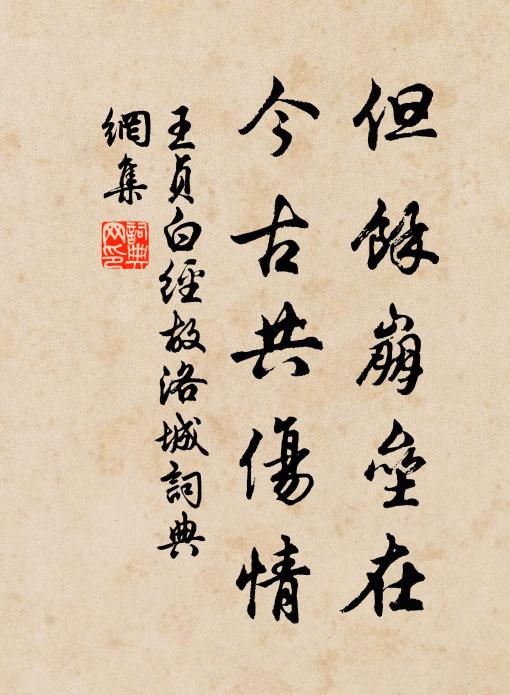 但餘崩壘在
今古共傷情
王貞白經故洛城詞典
網集
詞典
网印